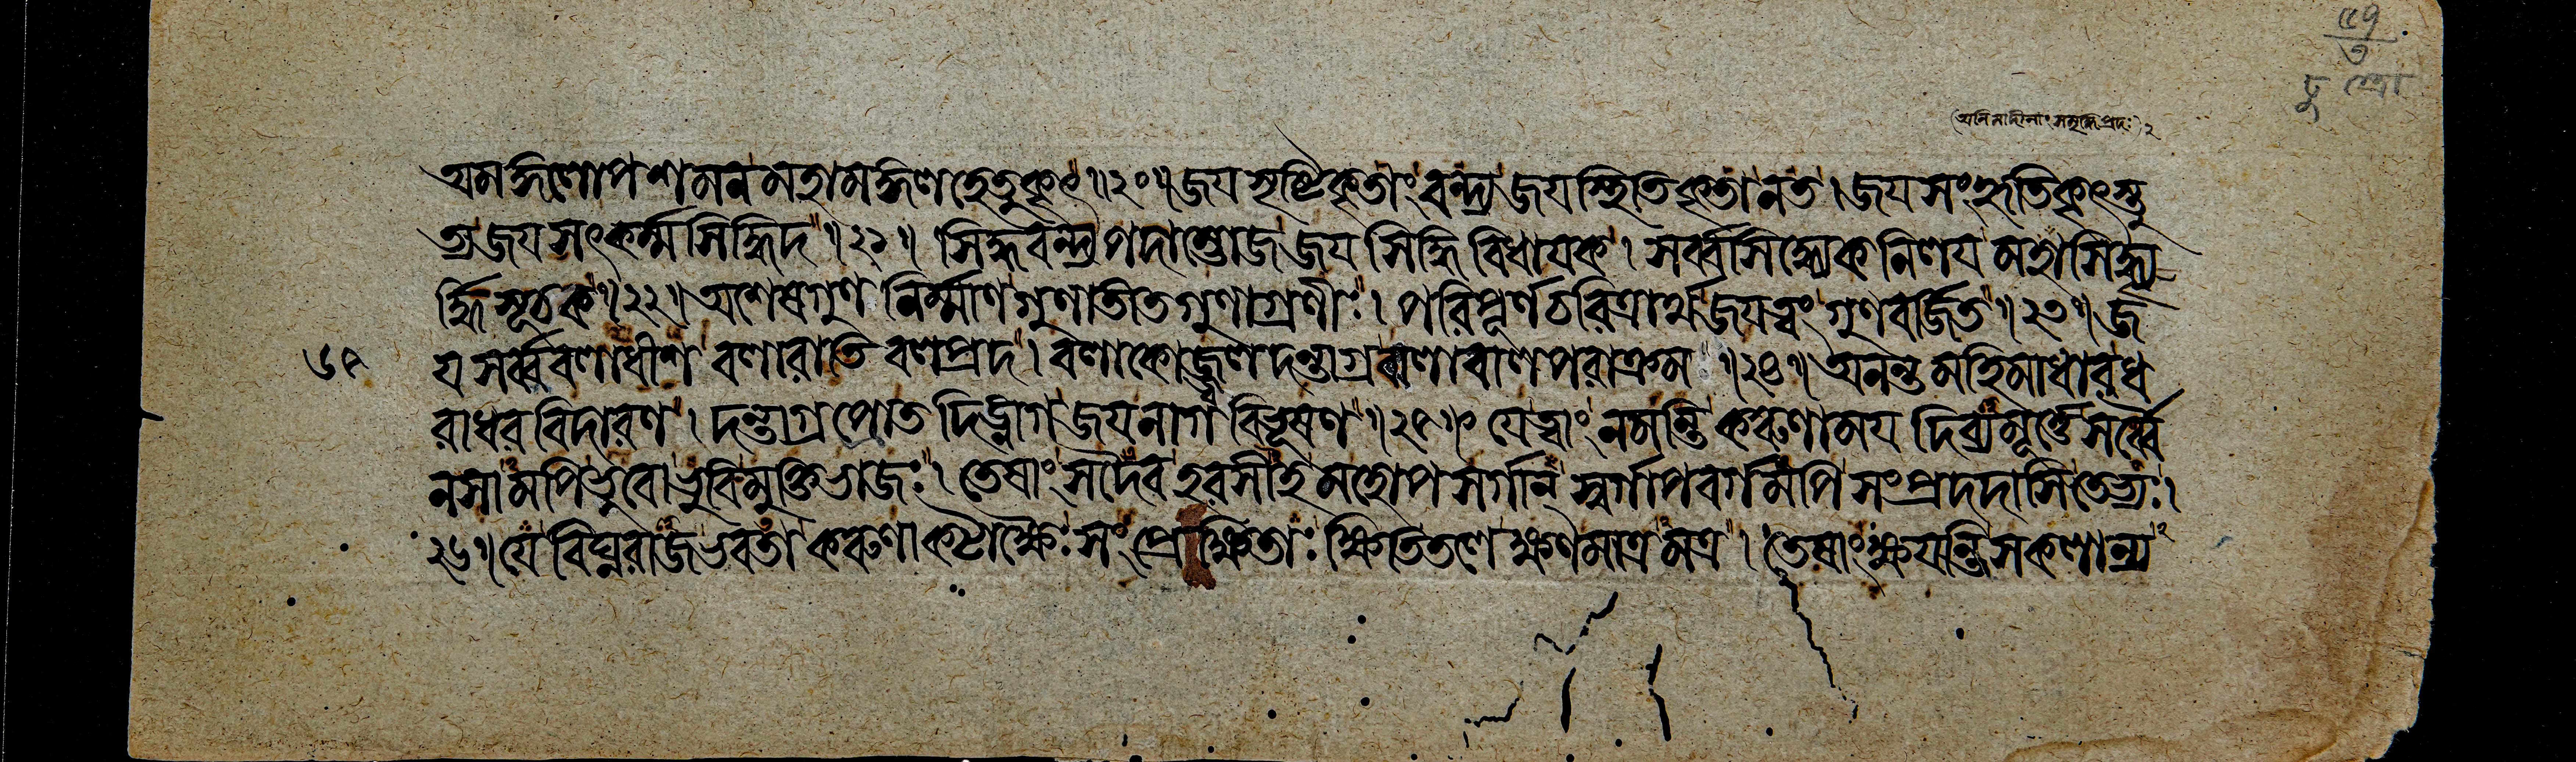 (অনিমাদীনাং সমৃদ্ধিপ্রদঃ)২
অমঙ্গলোপশমন মহামঙ্গলহেতুকৃৎ ॥২০॥ জয সৃষ্টিকৃতাং বন্দ্য জয স্থিতিকৃতানত । জয সংহৃতিকৃৎস্তু
ত্য জয সৎকর্ম্মসিদ্ধিদ ॥২১॥ সিদ্ধবন্দ্যপদাম্ভোজ জয সিদ্ধিবিধাযক । সর্ব্বসিদ্ধ্যেকনিলয মহাসিদ্ধ্যৃ
দ্ধিসূচক ॥২২॥ অশেষগুণনির্ম্মাণ গুণাতীত গুণাগ্রণীঃ । পরিপূর্ণচরিত্রার্থ জয ত্বং গুণবর্জিত ॥২৩॥ জ
৬৫ য সর্ব্ববলাধীশ বলারাতিবলপ্রদ । বলাকোজ্জ্বলদন্তাগ্র বালাবালপরাক্রম ॥২৪॥ অনন্তমহিমাধার ধ
রাধরবিদারণ । দন্তাগ্রপ্রোতদিঙ্নাগ জয নাগবিভূষণ ॥২৫॥ যে ত্বাং নমন্তি করুণাময দিব্যমূর্ত্তে সর্ব্বৈ
নসামপি ভুবো ভুবি মুক্তিভাজঃ । তেষাং সদৈব হরসীহ মহোপসর্গান্ স্বর্গাপবর্গমপি সংপ্রদদাসি তেভ্যঃ ।
২৬॥ যে বিঘ্নরাজ ভবতা করুণাকটাক্ষৈঃ সংপ্রেক্ষিতাঃ ক্ষিতিতলে ক্ষণমাত্রমত্র । তেষাং ক্ষযন্তি সকলান্য